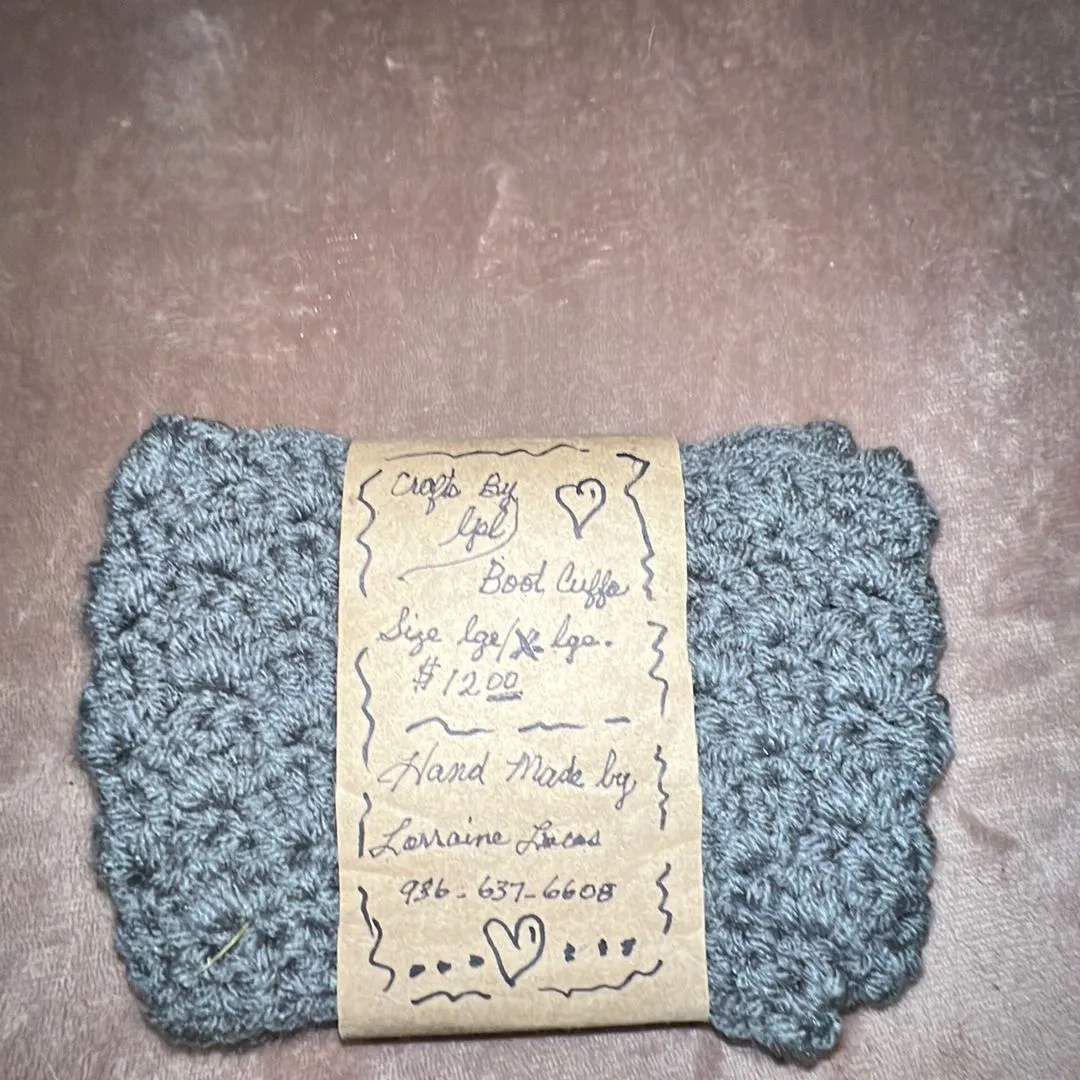 Crafts By
lgl
Boot Cuffs
Size lge/X-lge.
$12.00
Hand Made by
Lorraine Lucas
936-637-6608